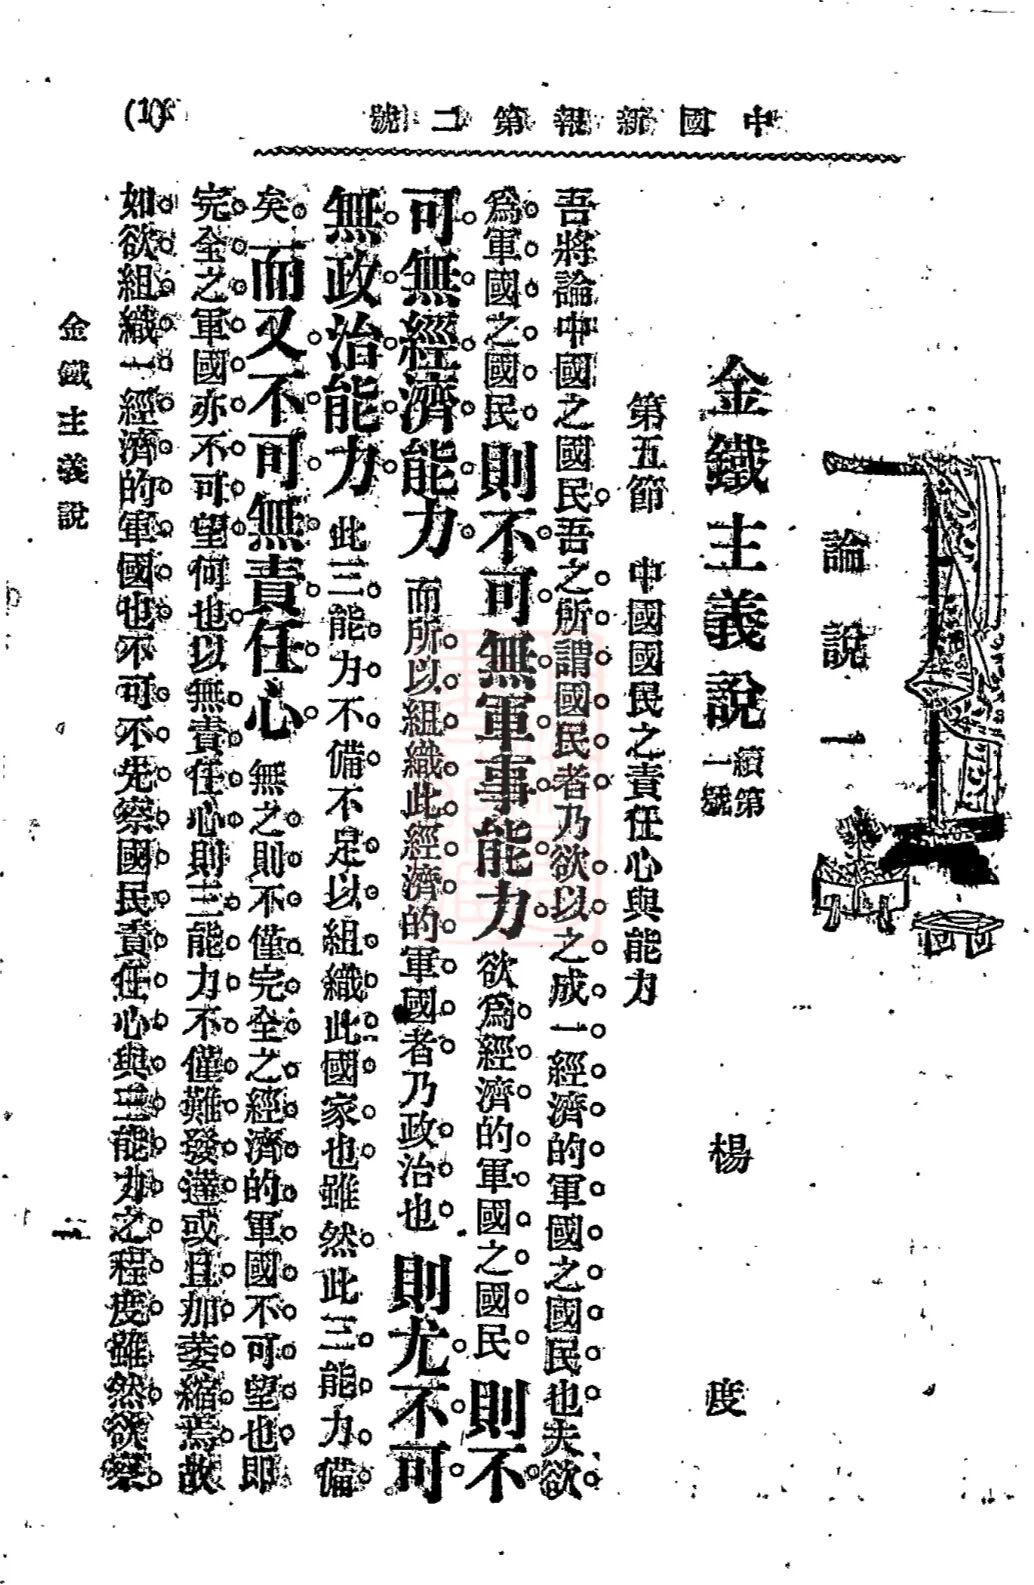 中國新報第二號
論說一
金鐵主義說 續第一號
楊度
第五節 中國國民之責任心與能力
吾將論中國之國民吾之所謂國民者乃欲以之成一經濟的軍國之國民也夫欲
爲軍國之國民則不可無軍事能力欲爲經濟的軍國之國民則不
可無經濟能力而所以組織此經濟的軍國者乃政治也則尤不可
無政治能力此三能力不備不足以組織此國家也雖然此三能力備
矣而又不可無責任心無之則不僅完全之經濟的軍國不可望也即
完全之軍國亦不可望何也以無責任心則三能力不僅難發達或且加萎縮焉故
如欲組織一經濟的軍國也不可不先察國民責任心與三能力之程度雖然欲察
金鐵主義說